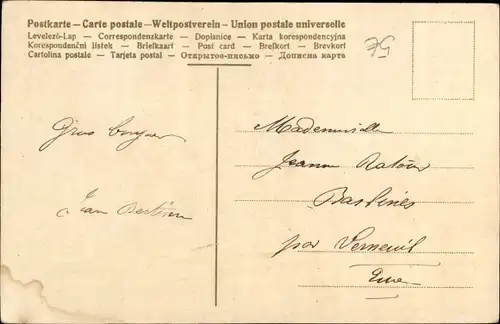 Postkarte — Carte postale — Weltpostverein — Union postale universelle
Levelező-Lap — Correspondenzkarte — Dopisnice — Karta korespondencyjna
Korespondenční listek — Briefkaart — Post card — Brefkort — Brevkort
Cartolina postale — Tarjeta postal — Открытое-письмо — Дописна карта
75
Mademoiselle
Jeanne
Baslines
par Verneuil
Eure
Gros
Jean